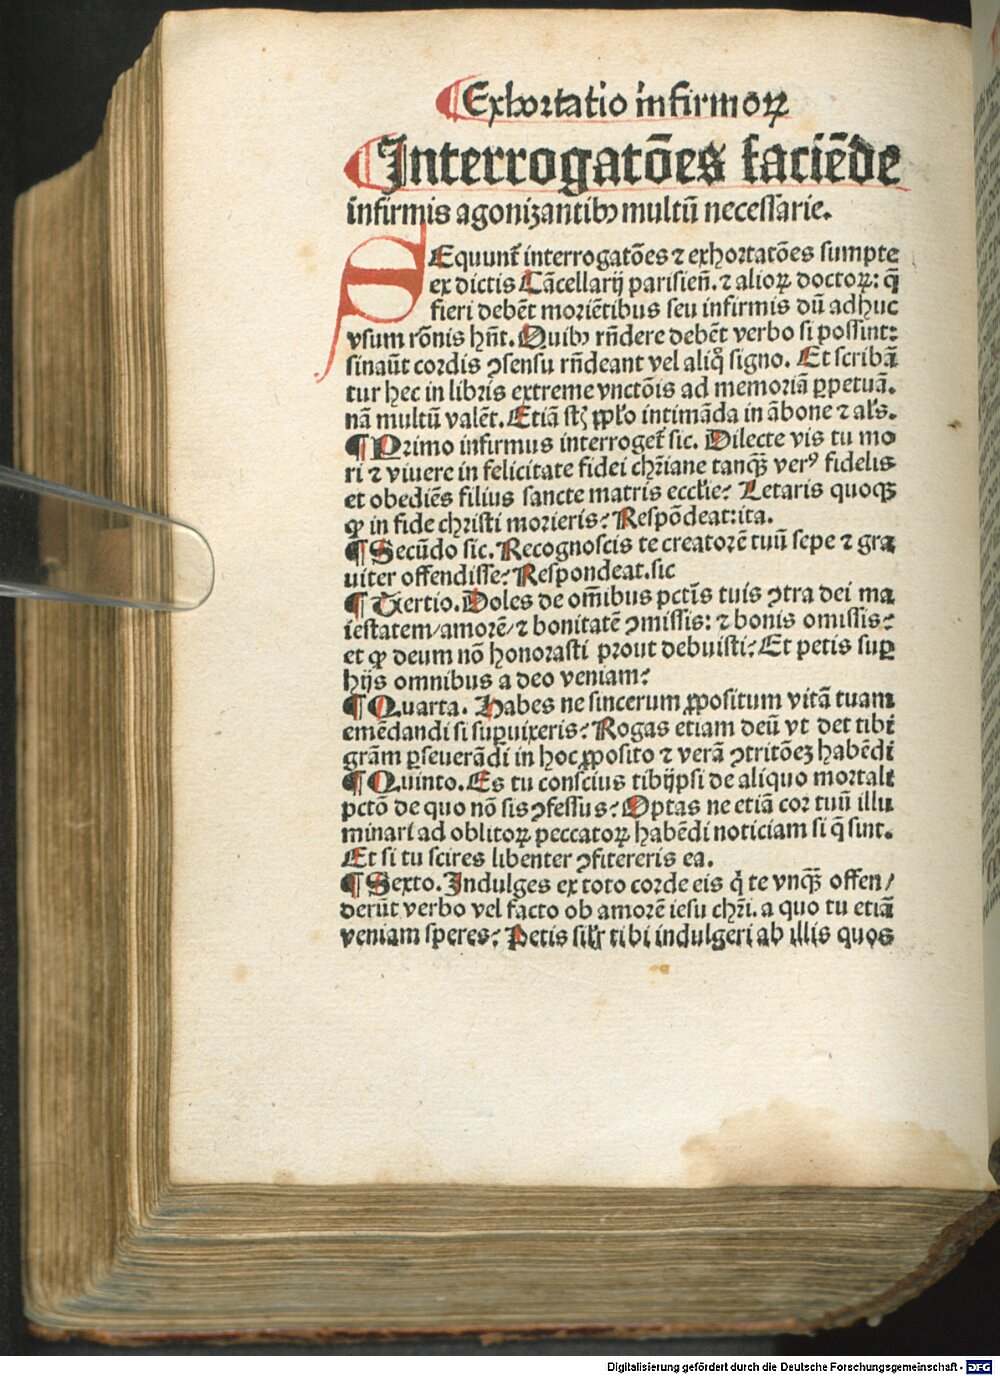 ¶Exhortatio infirmoꝝ
¶Interrogatōes faciēde
infirmis agonizantibꝫ multū necessarie.
SEquunt̄ interrogatōes ⁊ exhortatōes sumpte
ex dictis Cācellarij parisien̄. ⁊ alioꝝ doctoꝝ: q̄
fieri debēt moriētibus seu infirmis dū adhuc
vsum rōnis hn̄t. Quibꝫ rn̄dere debēt verbo si possint:
sinaūt cordis ꝯsensu rn̄deant vel aliq̊ signo. Et scribā
tur hec in libris extreme vnctōis ad memoriā ꝑpetuā.
nā multū valēt. Etiā stꝫ ꝓplo intimāda in ābone ⁊ al's.
¶Primo infirmus interroget̄ sic. Dilecte vis tu mo
ri ⁊ viuere in felicitate fidei chr̄iane tanqꝫ̄ verꝰ fidelis
et obediēs filius sancte matris eccl'ie? Letaris quoqꝫ
ꝙ in fide christi morieris? Respōdeat:ita.
¶Secūdo sic. Recognoscis te creatorē tuū sepe ⁊ gra
uiter offendisse? Respondeat.sic
¶Tertio. Doles de om̄ibus pctīs tuis ꝯtra dei ma
iestatem/amorē/⁊ bonitatē ꝯmissis: ⁊ bonis omissis?
et ꝙ deum nō honorasti prout debuisti? Et petis suꝑ
hijs omnibus a deo veniam?
¶Quarta. Habes ne sincerum ꝓpositum vitā tuam
emēdandi si suꝑuixeris? Rogas etiam deū vt det tibi
grām ꝑseuerādi in hoc ꝓposito ⁊ verā ꝯtritōeꝫ habēdi
¶Quinto. Es tu conscius tibijpsi de aliquo mortali
pctō de quo nō sis ꝯfessus? Optas ne etiā cor tuū illu
minari ad oblitoꝝ peccatoꝝ habēdi noticiam si q̄ sint.
Et si tu scires libenter ꝯfitereris ea.
¶Sexto. Indulges ex toto corde eis q̇ te vnqꝫ̄ offen/
derūt verbo vel facto ob amorē iesu chr̄i. a quo tu etiā
veniam speres? Petis sil'r tibi indulgeri ab illis quos
Digitalisierung gefördert durch die Deutsche Forschungsgemeinschaft - DFG